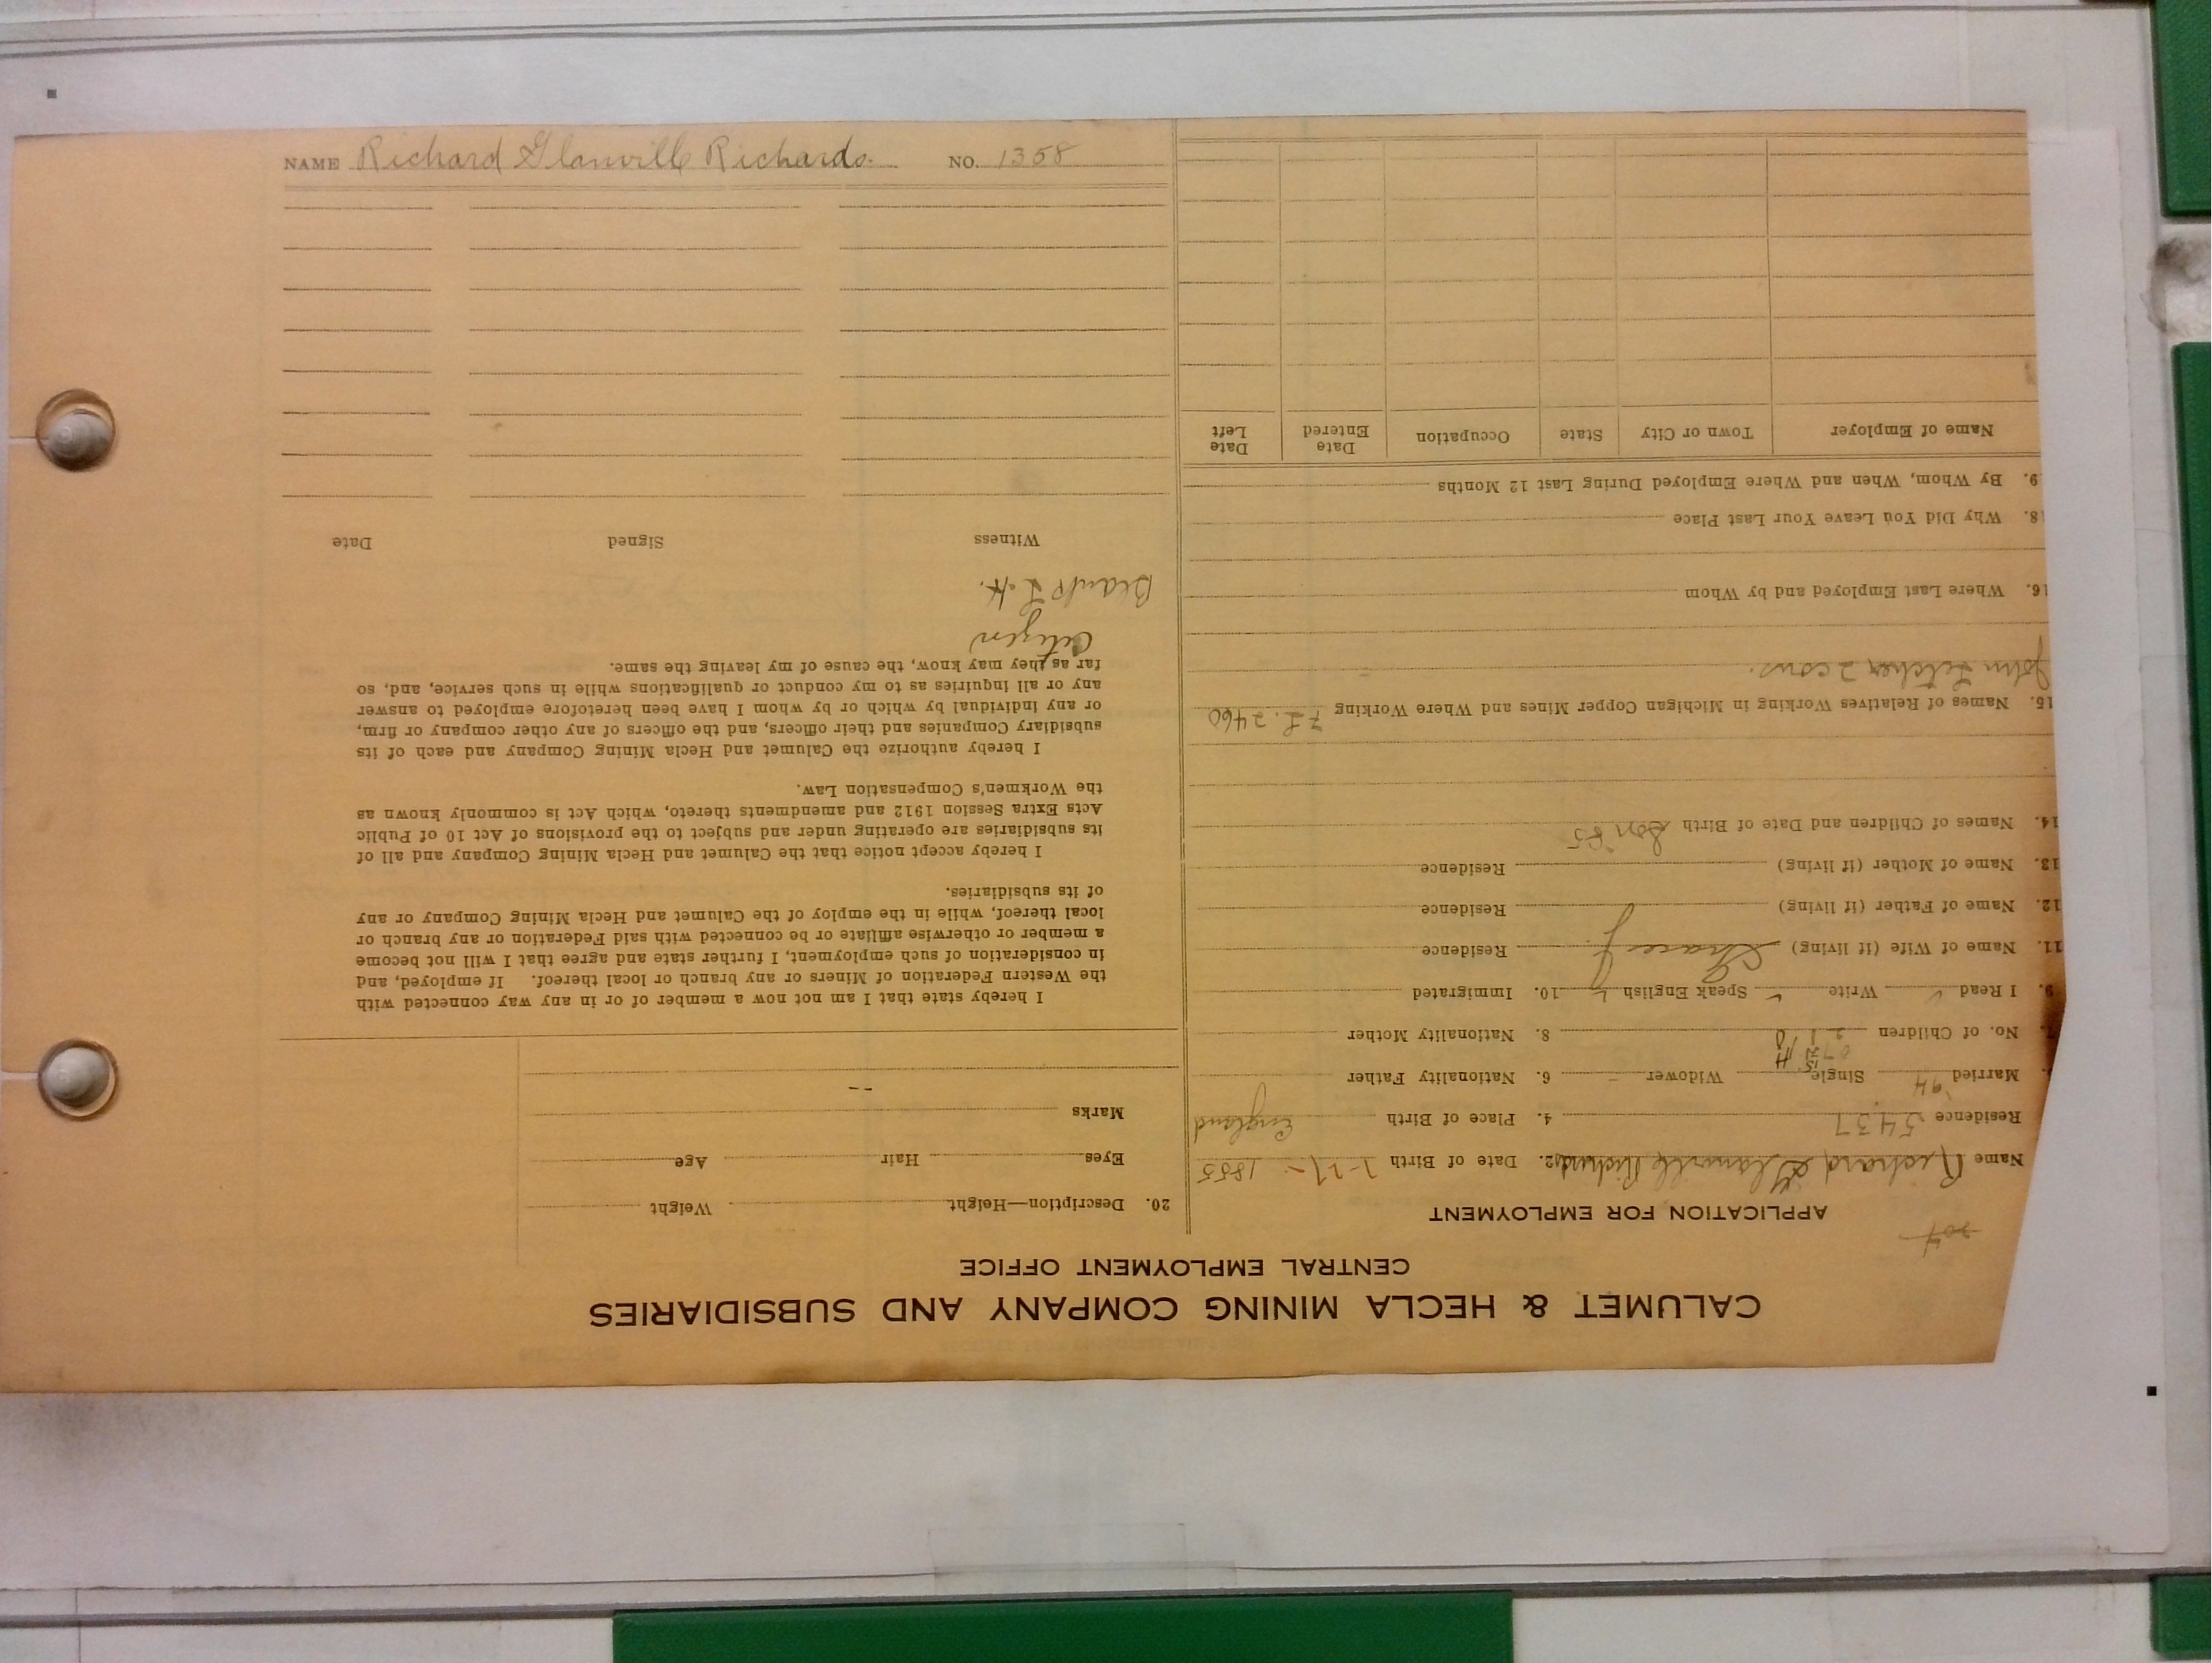 NAME Richard Glanville Richards. NO. 1358
CALUMET & HECLA MINING COMPANY AND SUBSIDIARIES
CENTRAL EMPLOYMENT OFFICE
APPLICATION FOR EMPLOYMENT
Name Richard Glanville Richards 2. Date of Birth 1855
Residence 5437 4. Place of Birth England
Married '94 Single Widower 6. Nationality Father
7. No. of Children 8. Nationality Mother
9. I Read ✓ Write ✓ Speak English ✓ 10. Immigrated
11. Name of Wife (if living) Residence
12. Name of Father (if living) Residence
13. Name of Mother (if living) Residence
14. Names of Children and Date of Birth
15. Names of Relatives Working in Michigan Copper Mines and Where Working 2460
John
16. Where Last Employed and by Whom
18. Why Did You Leave Your Last Place
19. By Whom, When and Where Employed During Last 12 Months
Name of Employer Town or City State Occupation Date Entered Date Left
20. Description—Height Weight
Eyes Hair Age
Marks
I hereby state that I am not now a member of or in any way connected with
the Western Federation of Miners or any branch or local thereof. If employed, and
in consideration of such employment, I further state and agree that I will not become
a member or otherwise affiliate or be connected with said Federation or any branch or
local thereof, while in the employ of the Calumet and Hecla Mining Company or any
of its subsidiaries.
I hereby accept notice that the Calumet and Hecla Mining Company and all of
its subsidiaries are operating under and subject to the provisions of Act 10 of Public
Acts Extra Session 1912 and amendments thereto, which Act is commonly known as
the Workmen's Compensation Law.
I hereby authorize the Calumet and Hecla Mining Company and each of its
subsidiary Companies and their officers, and the officers of any other company or firm,
or any individual by which or by whom I have been heretofore employed to answer
any or all inquiries as to my conduct or qualifications while in such service, and, so
far as they may know, the cause of my leaving the same.
Citizen
Witness Signed Date